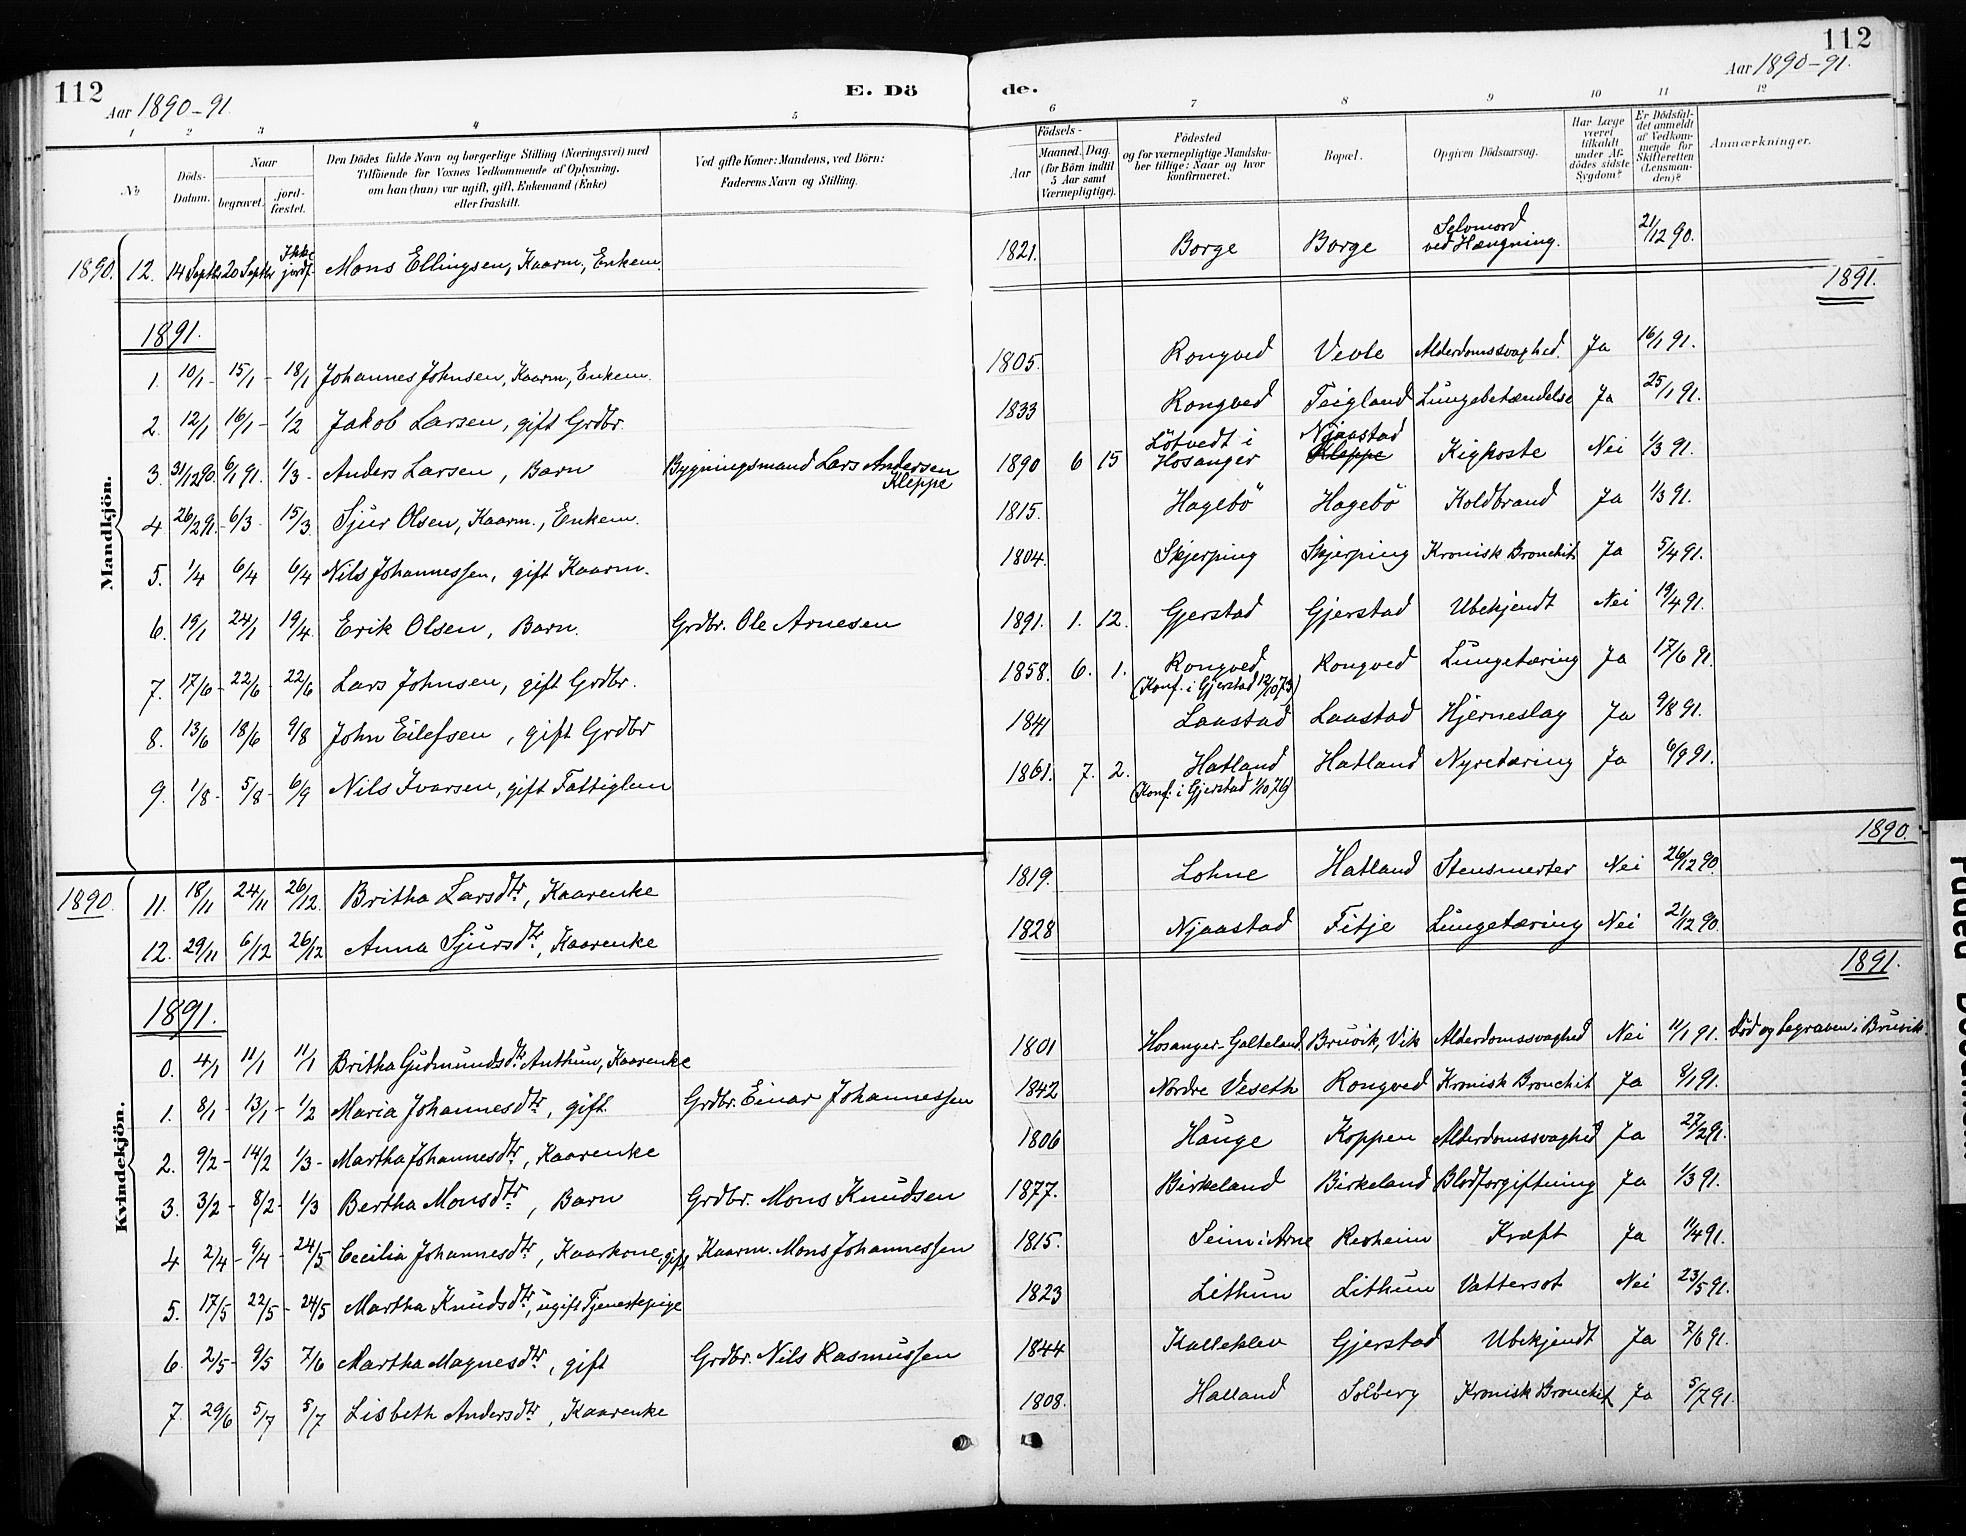 112
Aar 1890-91.
E. Dö
de.
112
Aar 1890-91.
1 2 3 4 5 6 7 8 9 10 11 12
No
Döds-Datum.
Naar
begravet.
jord-fæstet.
Den Dödes fulde Navn og borgerlige Stilling (Næringsvei) med
Tilföiende for Voxnes Vedkommende af Oplysning,
om han (hun) var ugift, gift, Enkemand (Enke)
eller fraskilt.
Ved gifte Koner: Mandens, ved Börn:
Faderens Navn og Stilling.
Födsels-
Aar
Maaned. Dag.
(for Börn indtil
5 Aar samt
Værnepligtige).
Födested
og for værnepligtige Mandska-
ber tillige: Naar og hvor
konfirmeret.
Bopæl.
Opgiven Dödsaarsag.
Har Læge
været
tilkaldt
under Af-
dödes sidste
Sygdom?
Er Dödsfal-
det anmeldt
af Vedkom-
mende for
Skifteretten
(Lensman-
den)?
Anmærkninger.
Mandkjön.
1890. 12. 14 Septbr 20 Septbr Ikke jordf. Mons Ellingsen, Kaarm, Enkem. 1821. Borge Borge Selvmord ved Hængning. 21/12 90.
1891.
1891.
1. 10/1 - 15/1 - 18/1 Johannes Johnsen, Kaarm, Enkem. 1805. Rongved Vevle Alderdomssvaghed. Ja 16/1 91.
2. 12/1 16/1 - 1/2 Jakob Larsen, gift Grdbr. 1833 Rongved Teigland Lungebetændelse Ja 25/1 91.
3. 31/12 90. 6/1 91. 1/3 - Anders Larsen, Barn Bygningsmand Lars Andersen Kleppe 1890 6 15 Lötvedt i Hosanger Njaastad Kleppe Kighoste Nei 1/3 91.
4 26/2 91. - 6/3 15/3 Sjur Olsen, Kaarm., Enkem. 1815. Hagebö Hagebö Koldbrand Ja 1/3 91.
5. 1/4 6/4 6/4 Nils Johannessen, gift Kaarm. 1804. Skjerping Skjerping Kronisk Bronchit Ja 5/4 91.
6. 19/1 24/1 19/4 Erik Olsen, Barn. Grdbr. Ole Arnesen 1891. 1. 12. Gjerstad Gjerstad Ubekjendt Nei 19/4 91.
7. 17/6 - 22/6 - 22/6 Lars Johnsen, gift Grdbr. 1858. 6. 1. Rongved (Konf. i Gjerstad 12/10 73) Rongved Lungetæring Ja 17/6 91.
8. 13/6 18/6 9/8 John Eilefsen, gift Grdbr 1841 Laastad Laastad Hjerneslag Ja 9/8 91.
9. 1/8 - 5/8 - 6/9 Nils Ivarsen, gift Fattiglem 1861. 7. 2. Hatland (Konf. i Gjerstad 1/10 76) Hatland Nyretæring Ja 6/9 91.
Kvindekjön.
1890.
1890. 11. 18/11 24/11 26/12. Britha Larsdtr, Kaarenke 1819. Lohne Hatland Stensmerter Nei 26/12 90.
12. 29/11 6/12 26/12 Anna Sjursdtr, Kaarenke 1828 Njaastad Fitje Lungetæring Nei 21/12 90.
1891.
1891.
0. 4/1 11/1 11/1 Britha Gudmundsdtr Anthun, Kaarenke 1801 Hosanger-Galteland Bruvik, Vik Alderdomssvaghed Nei 11/1 91. Död og begraven i Bruvik
1. 8/1 - 13/1 - 1/2 Maria Johannesdtr, gift. Grdbr. Einar Johannessen 1842 Nordre Veseth Rongved Kronisk Bronchit Ja 8/1 91.
2. 9/2 - 14/2 1/3 - Martha Johannesdtr, Kaarenke 1806 Hauge Koppen Alderdomssvaghed Ja 27/2 91.
3. 3/2 - 8/2 - 1/3 Bertha Monsdtr, Barn Grdbr. Mons Knudsen 1877. Birkeland Birkeland Blodforgiftning Ja 1/3 91.
4 2/4 - 9/4 - 24/5 Cecilia Johannesdtr, Kaarkone, gift Kaarm. Mons Johannessen 1815. Seim i Arne Revheim Kræft Ja 11/4 91.
5. 17/5 22/5 - 24/5 Martha Knudsdtr, ugift Tjenestepige 1823 Lithun Lithun Vattersot Nei 23/5 91.
6. 2/5 - 9/5 7/6 Martha Magnesdtr, gift Grdbr. Nils Rasmussen 1844 Kalleklev Gjerstad Ubekjendt Ja 7/6 91.
7. 29/6 5/7 5/7 Lisbeth Andersdtr, Kaarenke 1808. Halland Solberg Kronisk Bronchit Ja 5/7 91.